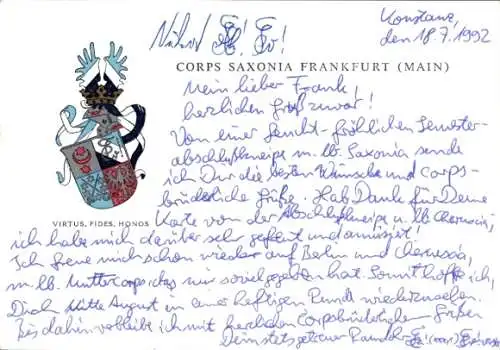 Konstanz,
den 18.7.1992
CORPS SAXONIA FRANKFURT (MAIN)
Mein lieber Frank!
herzlichen Gruß zuvor!
Von einer feucht-fröhlichen Semester-
abschlußkneipe m. lb. Saxonia sende
ich Dir die besten Wünsche und corps-
brüderliche Grüße. Hab Dank für Deine
Karte von der Abschlußkneipe u. lb. Cheruscia,
VIRTUS, FIDES, HONOS
ich habe mich darüber sehr gefreut und amüsiert!
Ich freue mich schon wieder auf Berlin und Cheruscia,
m. lb. Muttercorps, das mir soviel gegeben hat. Somit hoffe ich,
Dich Mitte August in einer heftigen Runde wiederzusehen.
Bis dahin verbleibe ich mit herzlichen corpsbrüderlichen Grüßen
Dein stets getreuer